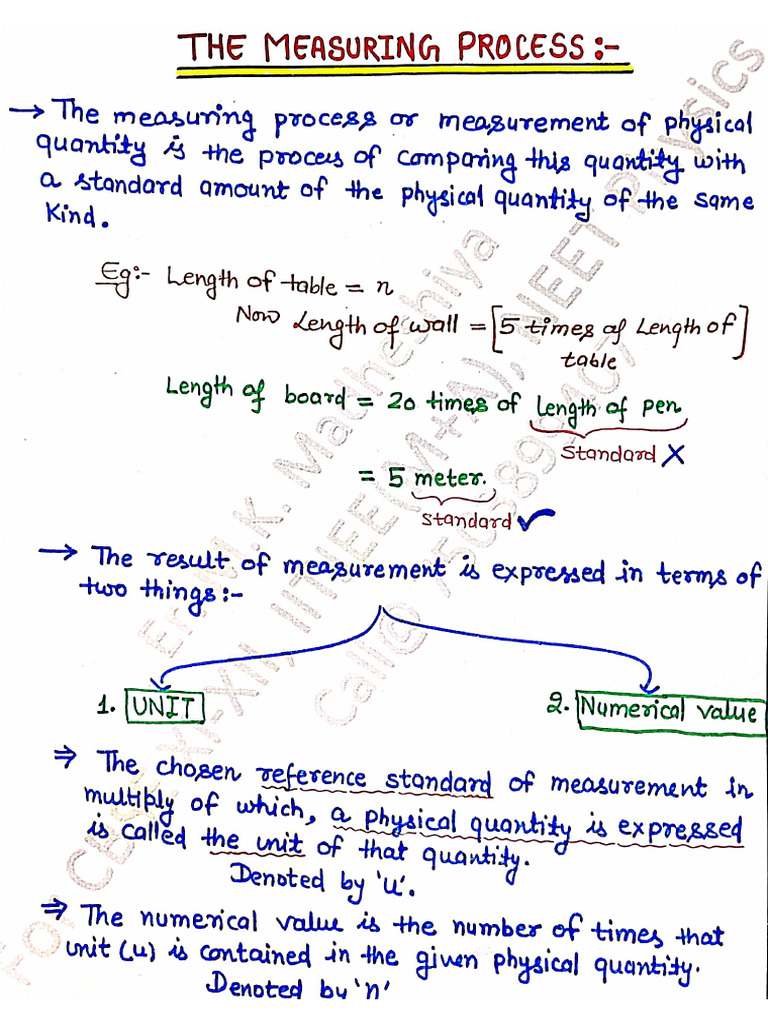 THE MEASURING PROCESS :-
→ The measuring process or measurement of physical
quantity is the proces of comparing this quantity with
a standard amount of the physical quantity of the same
kind.
Eg:- Length of table = n
Now Length of wall = [5 times of Length of
table]
Length of board = 20 times of Length of pen
Standard X
= 5 meter.
standard ✓
→ The result of measurement is expressed in terms of
two things:-
1. UNIT
2. Numerical value
⇒ The chosen reference standard of measurement in
multiply of which, a physical quantity is expressed
is called the unit of that quantity.
Denoted by 'u'.
⇒ The numerical value is the number of times that
unit (u) is contained in the given physical quantity.
Denoted by 'n'